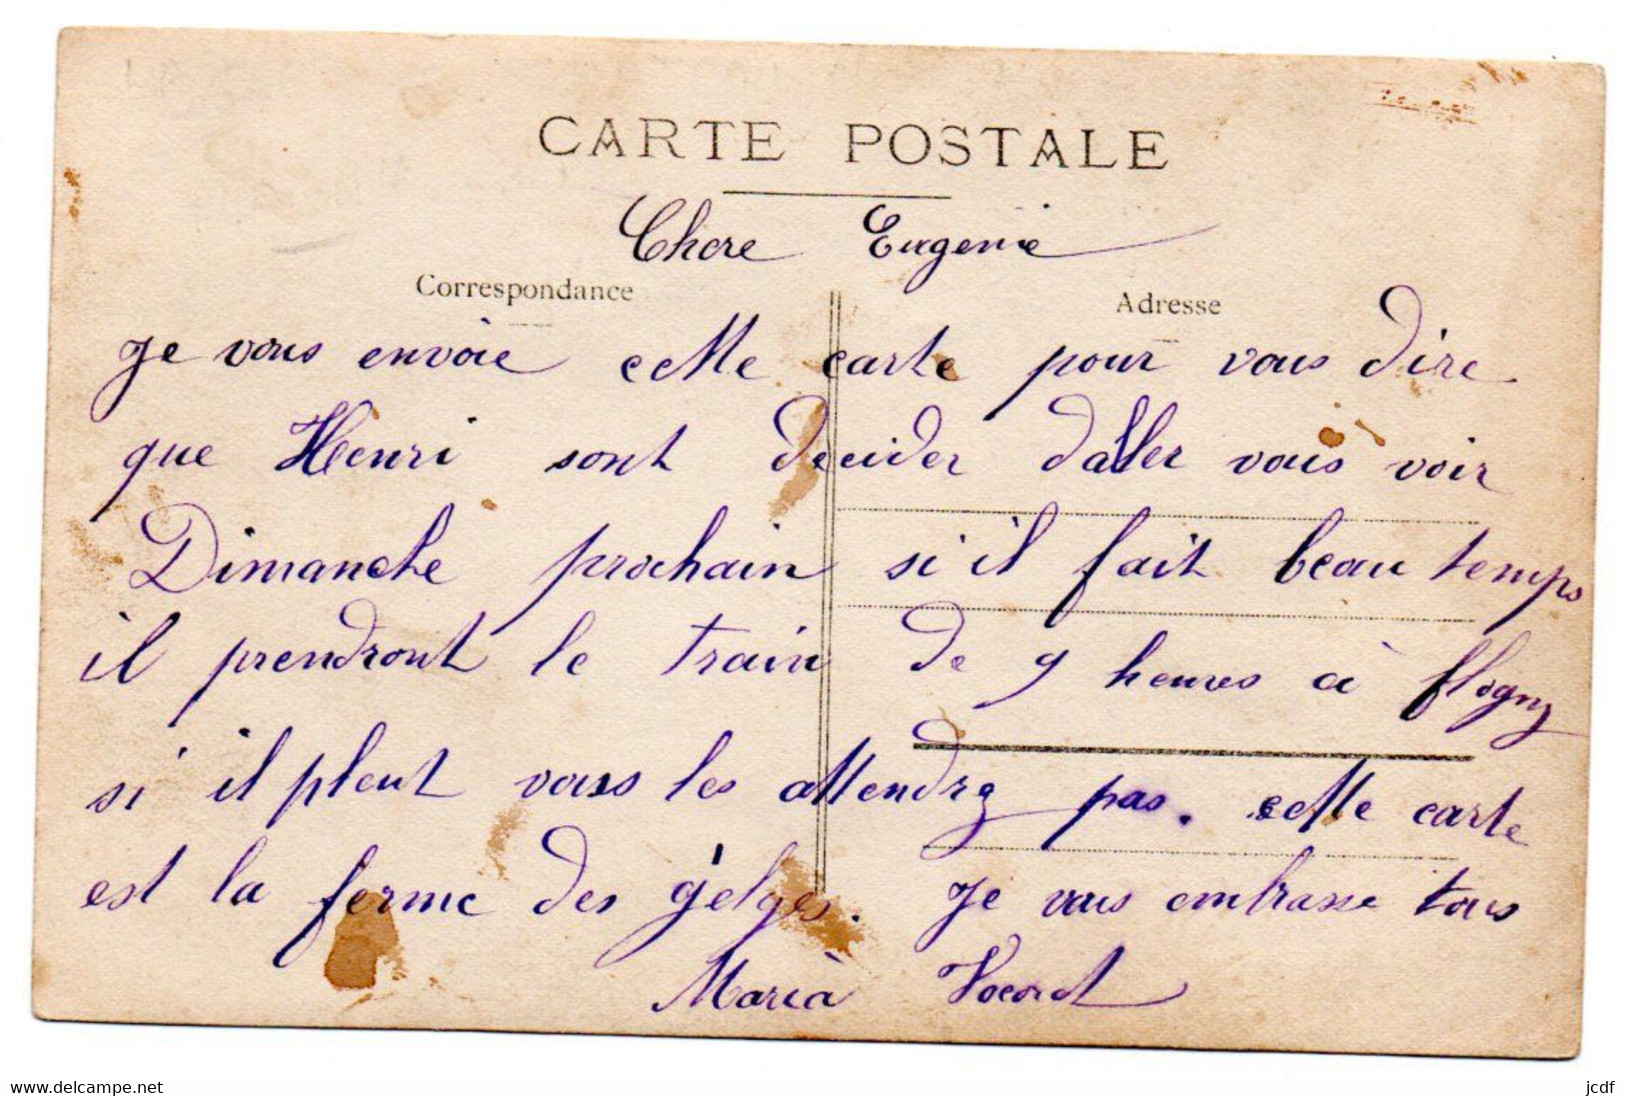 CARTE POSTALE
Chere Eugenie
Correspondance
Adresse
Je vous envoie cette carte pour vous dire
que Henri sont decider daller vous voir
Dimanche prochain si il fait beau temps
il prendront le train de 9 heures à flogny
si il pleut vous les attendrez pas. cette carte
est la ferme des . Je vous embrasse tous
Maria
www.delcampe.net
jcdf